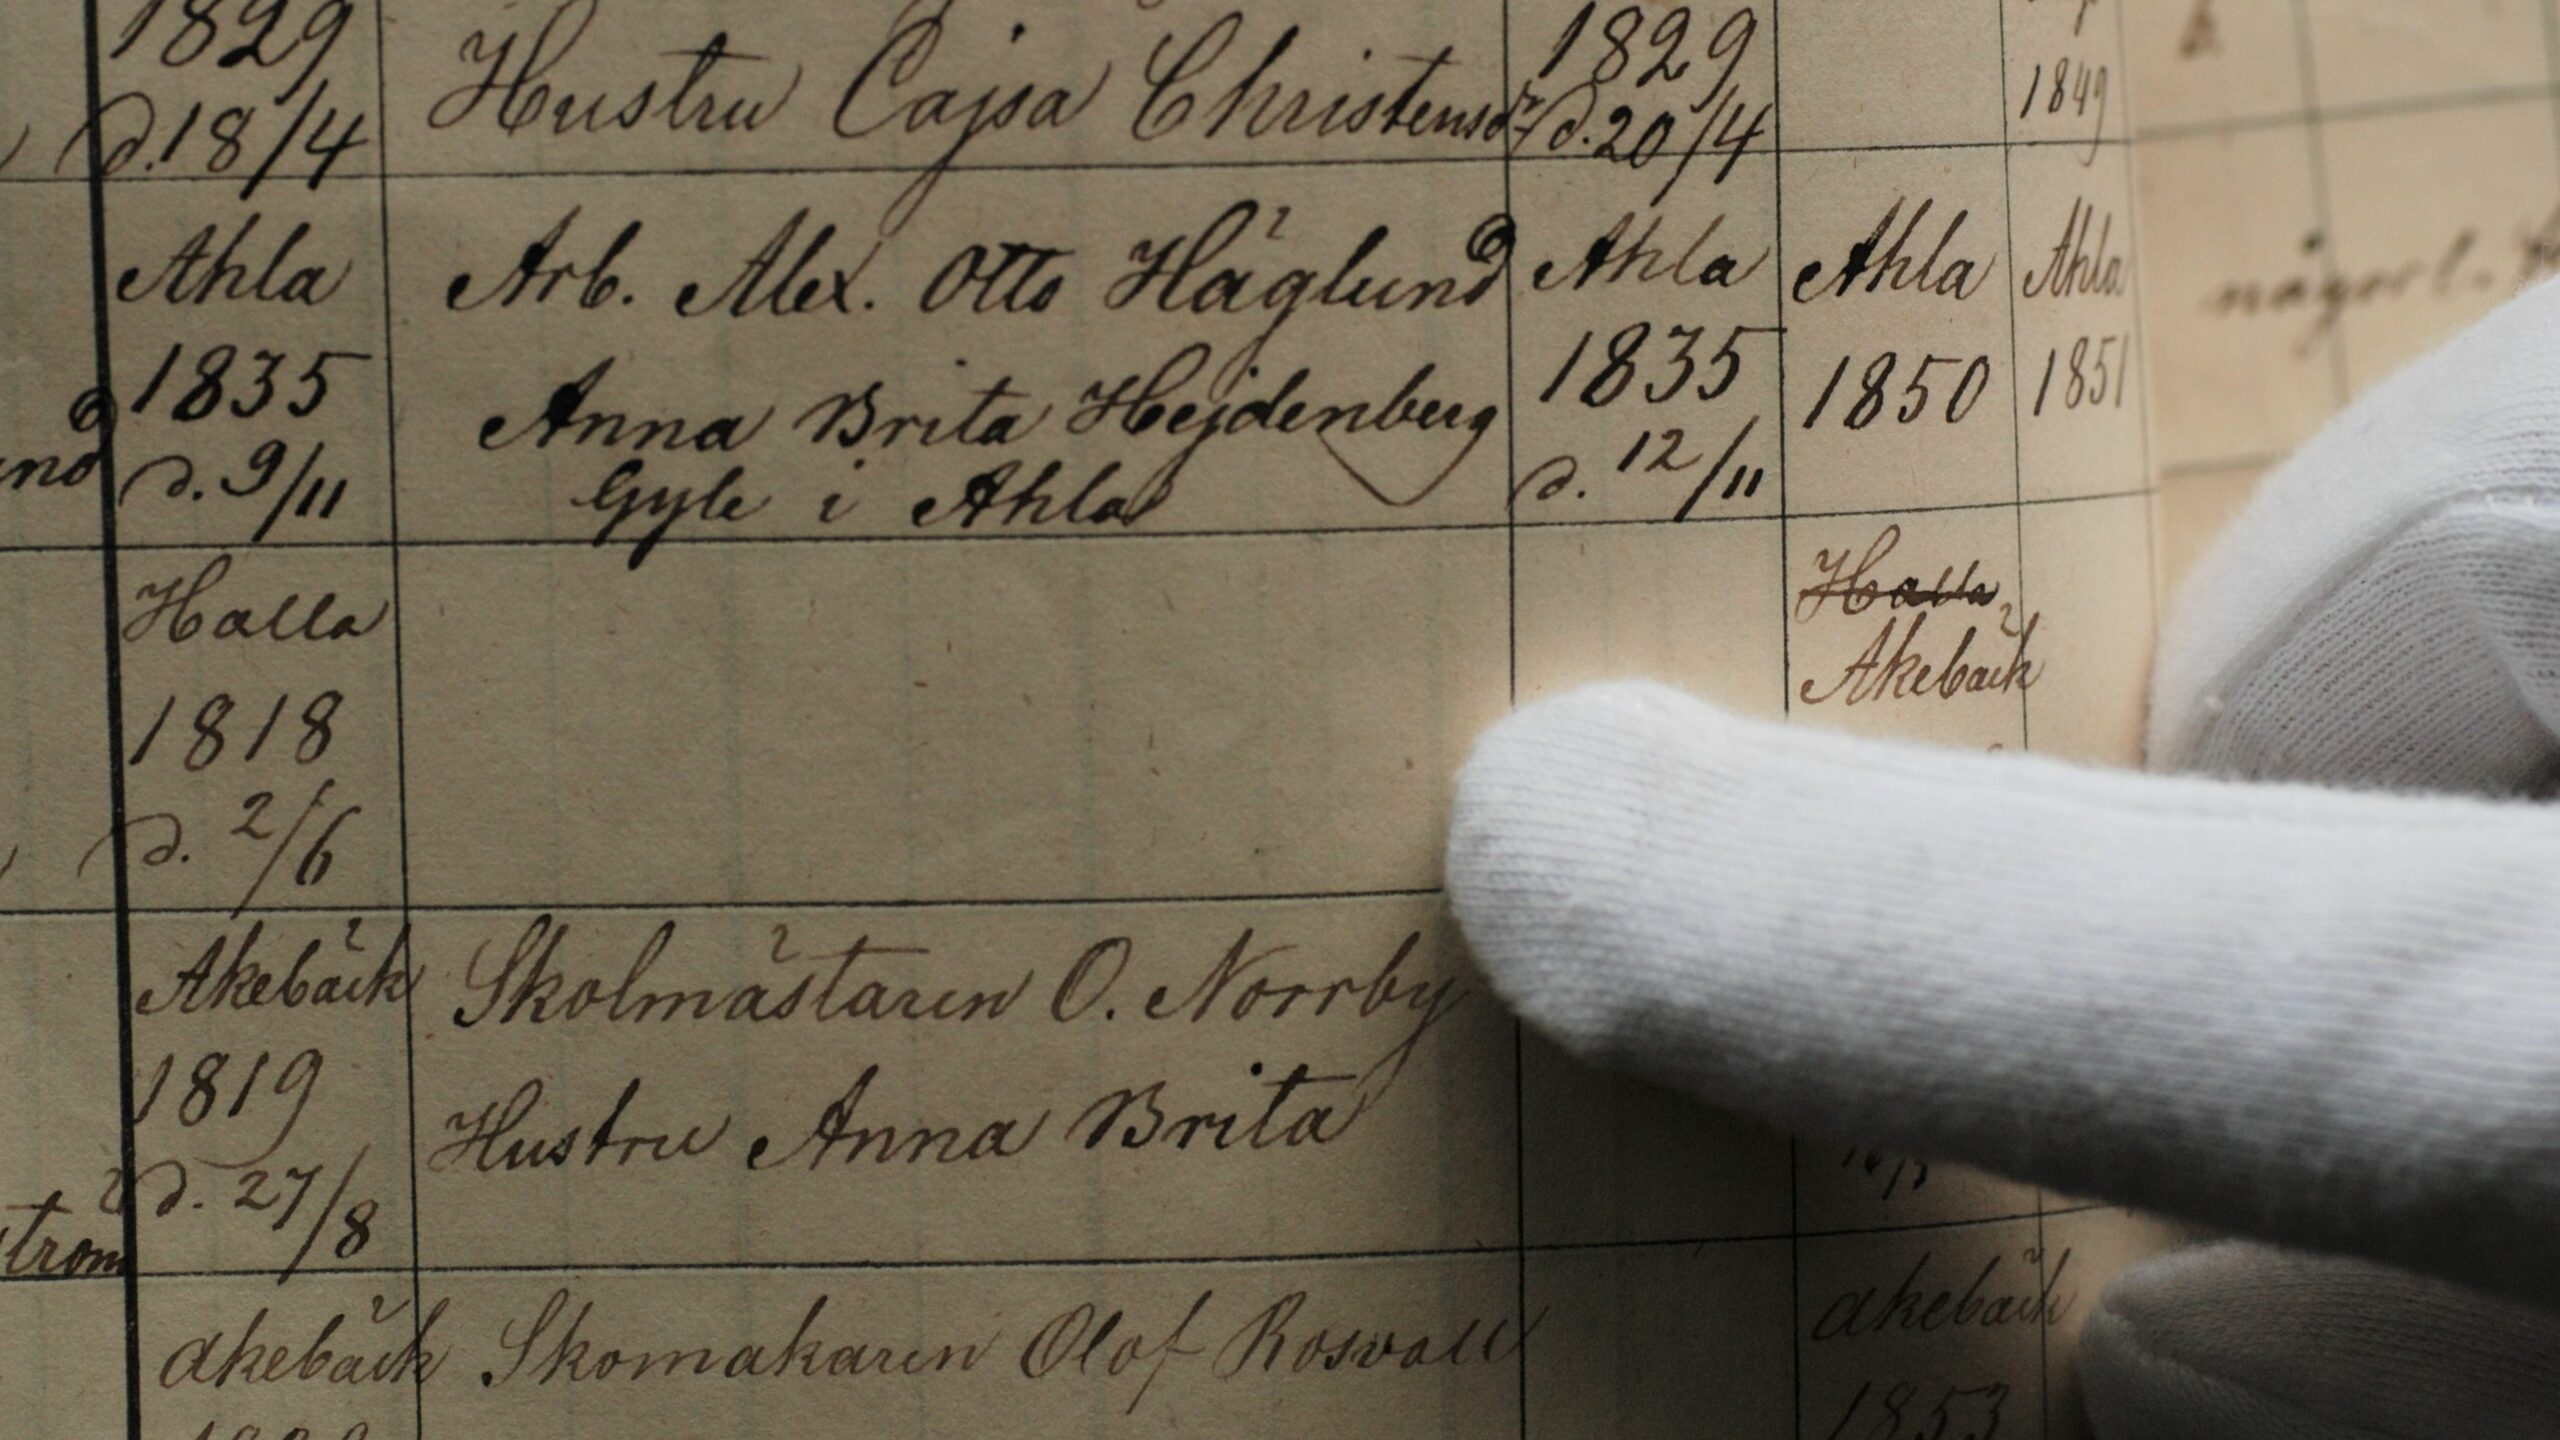 1829
d. 18/4
Hustru Cajsa Christensdr
1829
d. 20/4
1849
Ahla
1835
d. 9/11
Arb. Alex. Otto Häglund
Anna Brita Hejdenberg
Gyle i Ahla
Ahla
1835
d. 12/11
Ahla
1850
Ahla
1851
und
Halla
1818
d. 2/6
Halla
Akebäck
Akebäck
1819
d. 27/8
Skolmästaren O. Norrby
Hustru Anna Brita
ström
Akebäck
Skomakaren Olof Rosvall
Akebäck
1853